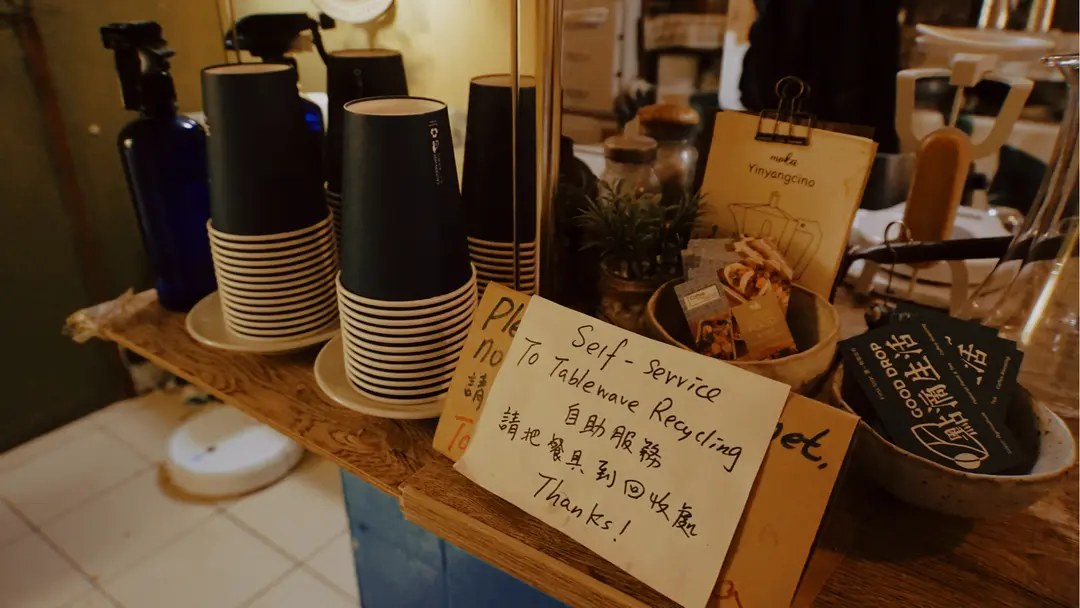 Self-service
To Tablewave Recycling
自助服務
請把餐具到回收處
Thanks!
Ple
no
請
To
net,
moka
Yinyangcino
GOOD DROP
點滴生活